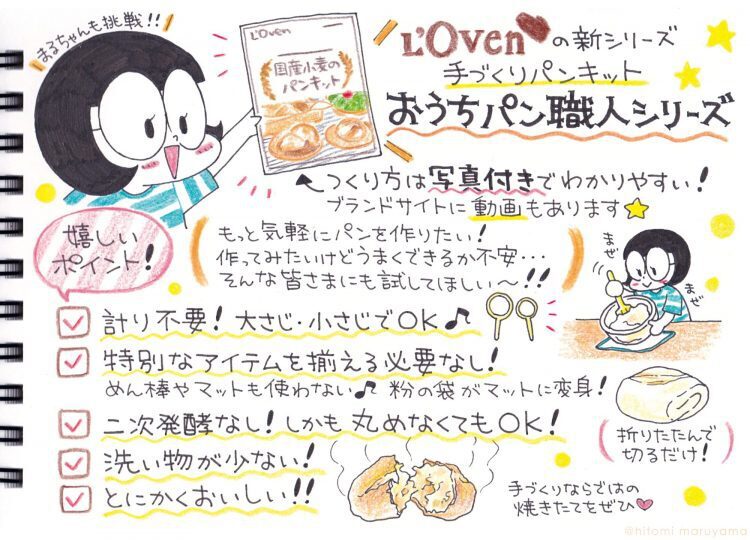 まるちゃんも挑戦!!
L'Oven
国産小麦の
パンキット
L'Ovenの新シリーズ
手づくりパンキット
おうちパン職人シリーズ
つくり方は写真付きでわかりやすい!
ブランドサイトに動画もあります
嬉しい
ポイント!
もっと気軽にパンを作りたい!
作ってみたいけどうまくできるか不安…
そんな皆さまにも試してほしい〜!!
まぜ
まぜ
計り不要! 大さじ・小さじでOK♪
特別なアイテムを揃える必要なし!
めん棒やマットも使わない♪ 粉の袋がマットに変身!
二次発酵なし! しかも丸めなくてもOK!
折りたたんで
切るだけ!
洗い物が少ない!
とにかくおいしい!!
手づくりならではの
焼きたてをぜひ♥
@hitomi maruyama